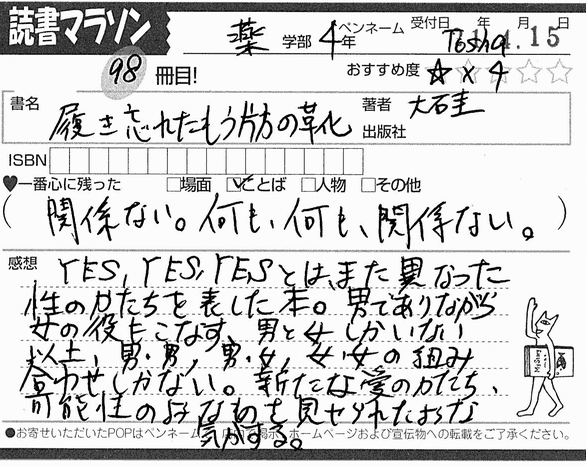 読書マラソン
薬 学部 4 年
ペンネーム Tosha
受付日 年 月 日
4.15
98 冊目!
おすすめ度 ☆×4 ☆☆
書名 履き忘れたもう片方の革化
著者 大石圭
出版社
ISBN
♥一番心に残った □場面 ☑ことば □人物 □その他
(関係ない。何も、何も、関係ない。)
感想 YES, YES, YESとは、また異なった
性のカたちを表した本。男でありながら
女の役はこなす、男と女しかいない
以上、男・男、男・女、女・女の組み
合わせしかない。新たな愛のカたち、
可能性のようなものを見せられたような
気がする。
●お寄せいただいたPOPはペンネームで 店内で掲示、ホームページおよび宣伝物への転載をご了承ください。